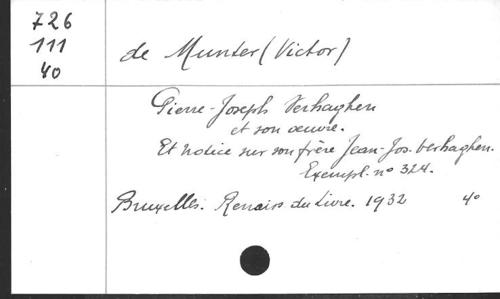 726
111
40
de Munter (Victor)
Pierre-Joseph Verhaghen
et son œuvre.
Et notice sur son frère Jean-Jos. Verhaghen.
Exempl. n° 324.
Bruxelles. Renaiss du Livre. 1932 4°